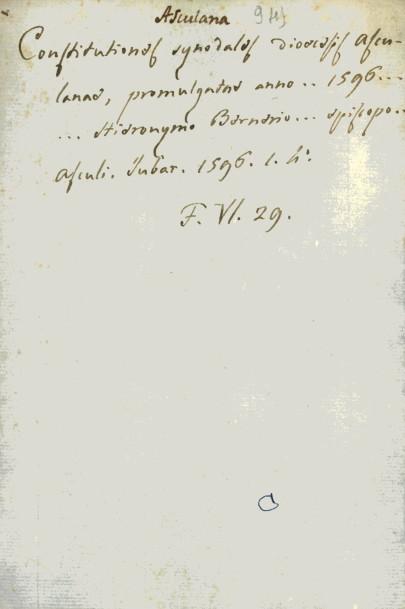 Asculana
Constitutiones synodales dioecesis Ascu-
lanae, promulgatae anno .. 1596 ...
... Hieronymo Bernerio ... episcopo ..
Asculi. Iubar. 1596. 1. h°.
F. VI. 29.